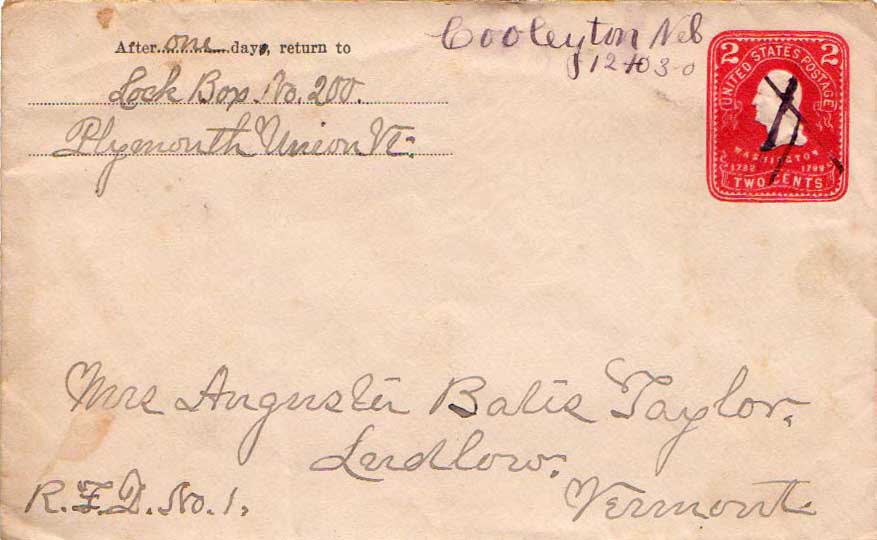 After one days, return to
Lock Box No. 200.
Plymouth Union Vt.
Cooleyton Neb
12 03
2 2
UNITED STATES POSTAGE
WASHINGTON
1732 1799
TWO CENTS
Mrs Auguster Batis Taylor.
Ludlow.
R.F.D. No. 1, Vermont.